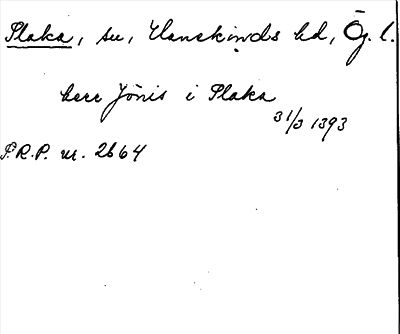 Plaka, sn, Hanekinds hd, Ög. l.
herr Jönis i Plaka
31/3 1393
S.R.P. nr. 2664